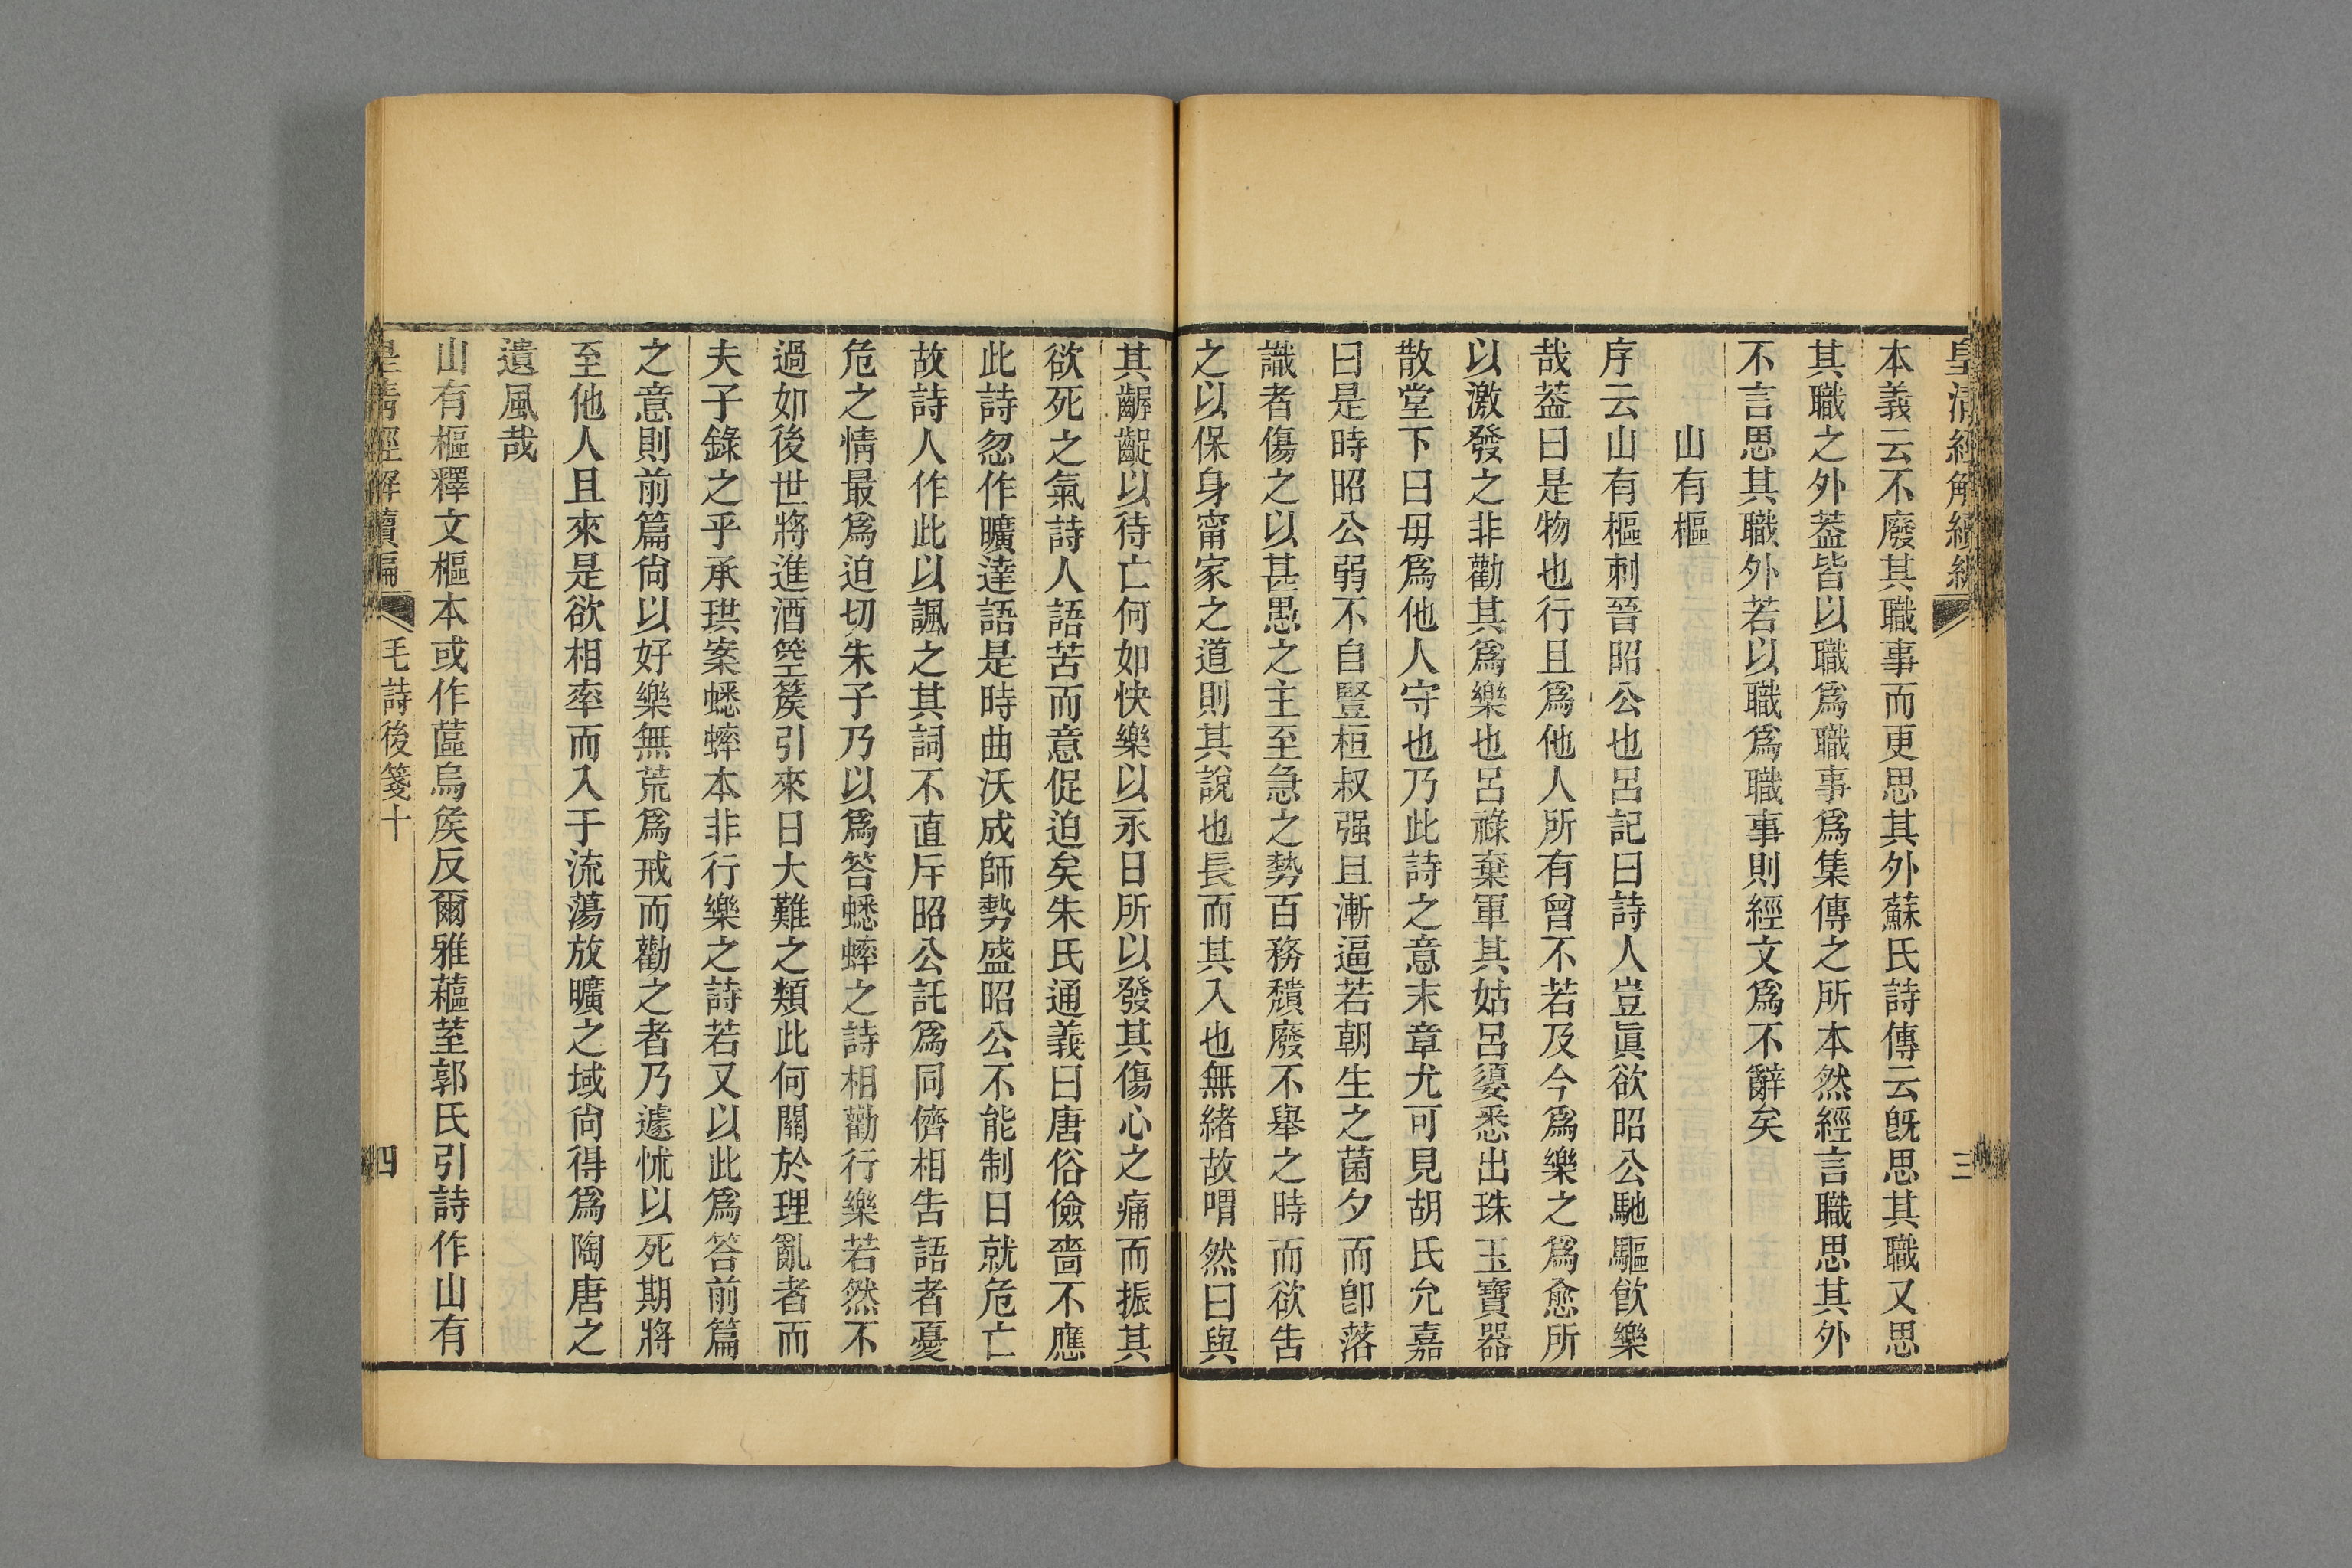 皇清經解續編
三
本義云不廢其職事而更思其外蘇氏詩傳云旣思其職又思
其職之外葢皆以職爲職事爲集傳之所本然經言職思其外
不言思其職外若以職爲職事則經文爲不辭矣
山有樞
序云山有樞刺晉昭公也呂記曰詩人豈眞欲昭公馳驅飮樂
哉葢曰是物也行且爲他人所有曾不若及今爲樂之爲愈所
以激發之非勸其爲樂也呂祿棄軍其姑呂嬃悉出珠玉寶器
散堂下曰毋爲他人守也乃此詩之意末章尤可見胡氏允嘉
曰是時昭公弱不自豎桓叔强且漸逼若朝生之菌夕而卽落
識者傷之以甚愚之主至急之勢百務穨廢不舉之時而欲告
之以保身甯家之道則其說也長而其入也無緒故喟然曰與
其齷齪以待亡何如快樂以永日所以發其傷心之痛而振其
欲死之氣詩人語苦而意促迫矣朱氏通義曰唐俗儉嗇不應
此詩忽作曠達語是時曲沃成師勢盛昭公不能制日就危亡
故詩人作此以諷之其詞不直斥昭公託爲同儕相告語者憂
危之情最爲迫切朱子乃以爲答蟋蟀之詩相勸行樂若然不
過如後世將進酒箜篌引來日大難之類此何關於理亂者而
夫子錄之乎承珙案蟋蟀本非行樂之詩若又以此爲答前篇
之意則前篇尙以好樂無荒爲戒而勸之者乃遽怵以死期將
至他人且來是欲相率而入于流蕩放曠之域尙得爲陶唐之
遺風哉
山有樞釋文樞本或作蓲烏矦反爾雅藲荎郭氏引詩作山有
皇清經解續編
毛詩後箋十
四